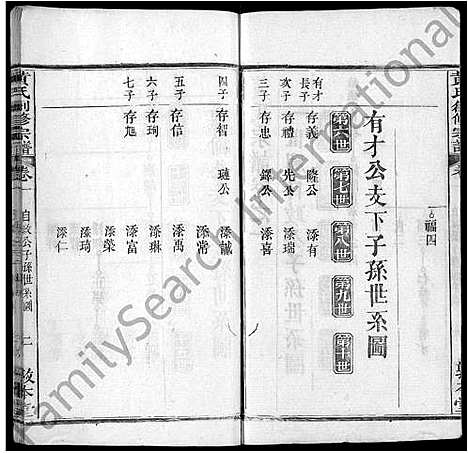 福四
有才公支下子孫世系圖
第六世 第七世 第八世 第九世 第十世
有才
長子 存義 隆公 添有
次子 存禮 先公 添瑞
三子 存忠 鐸公 添喜
四子 存智 璉公 添誠
添常
五子 存信 添禹
添琳
六子 存珣 添富
添榮
七子 存旭 添琦
添仁
黃氏 修宗譜 卷
公子孫世系圖
敦本堂
FamilySearch International